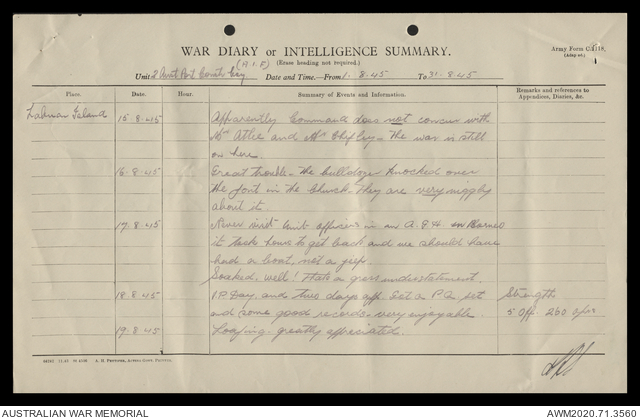 WAR DIARY or INTELLIGENCE SUMMARY.
Army Form C.2118.
(A.I.F)
(Erase heading not required.)
Unit 2 Aust Port Constr Coy Date and Time.—From 1. 8. 45 To 31. 8. 45
Place. Date. Hour. Summary of Events and Information. Remarks and references to Appendices, Diaries, &c.
Labuan Island 15. 8. 45 Apparently Command does not concur with
Mr Atlee and Mr Chifley - The war is still
on here.
16. 8. 45 Great trouble - the bulldozer knocked over
the font in the Church. They are very niggly
about it
17. 8. 45 Never visit Unit officers in an on Borneo
it took hours to get back and we should have
had a boat, not a jeep.
Soaked. well! Thats a gross understatement.
18. 8. 45 V.P. Day and two days off. Got a P.A. set Strength
and some good records - very enjoyable. 5 Off. 260 o/rs
19. 8. 45 Loafing - greatly appreciated.
AUSTRALIAN WAR MEMORIAL
AWM2020.71.3560